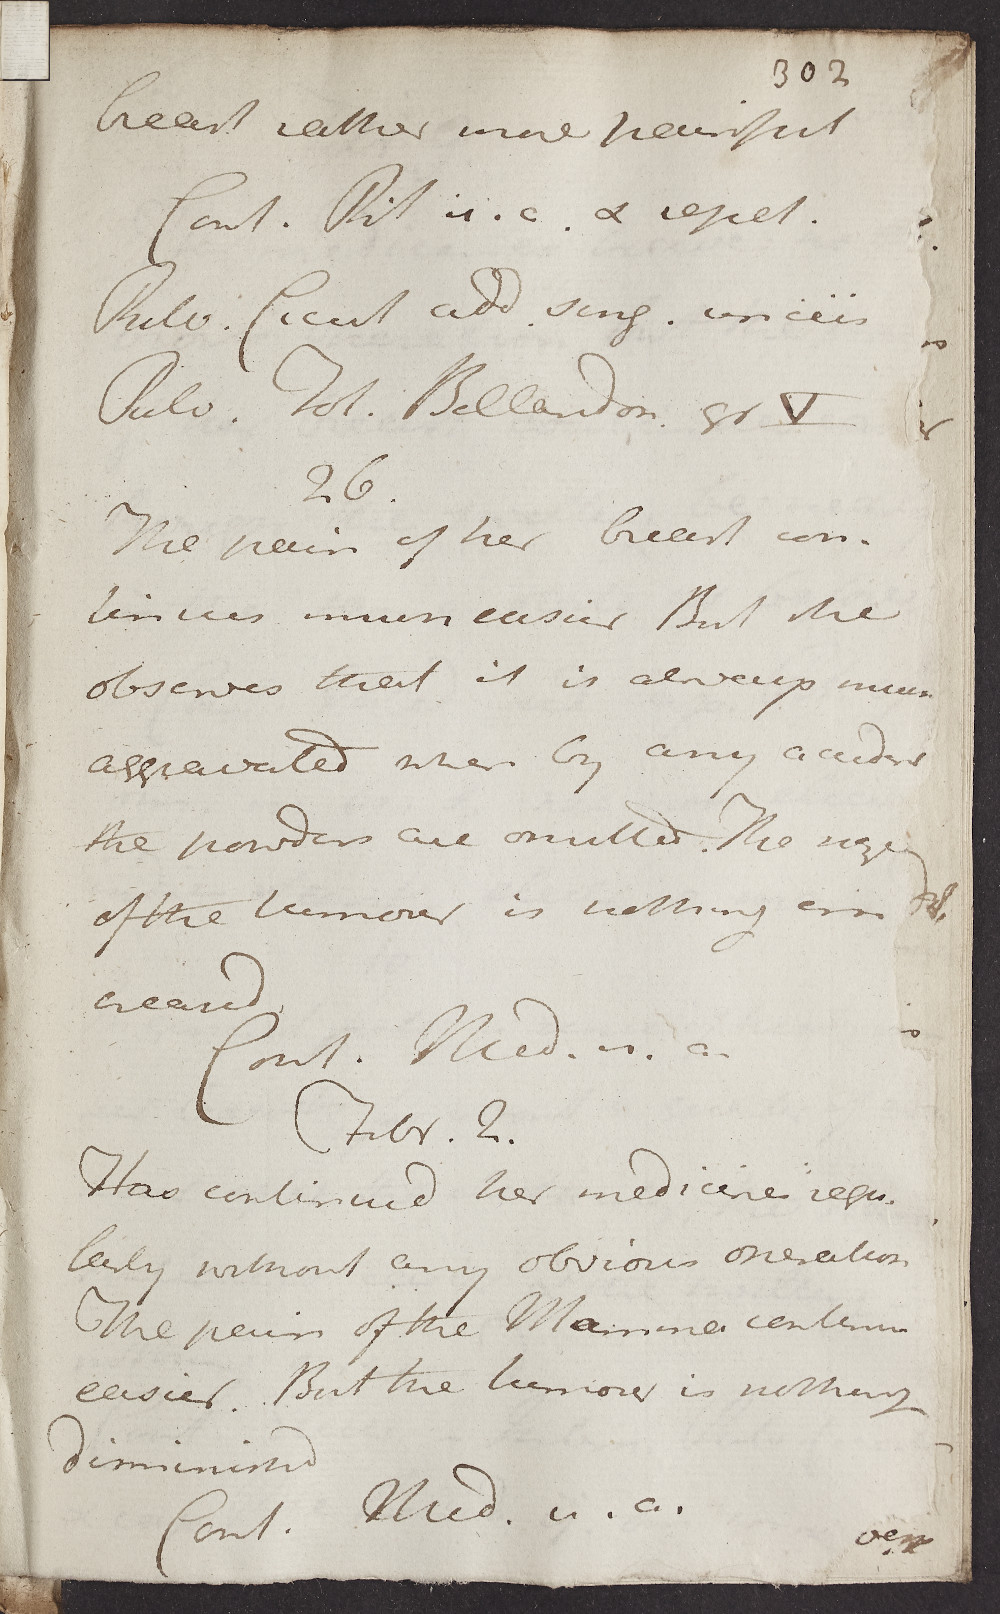 302
breast rather more painful
Cont. Pil u. a. & repet.
Pulv. Cicut add sing. unciis
Pulv. Fol. Belladon. gr V
26.
The pain of her breast con-
tinues much easier But she
observes that it is always much
aggravated when by any accident
the powders are omitted. The
of the tumour is nothing in
creased
Cont. Med. u. a.
Febr. 2.
Has continued her medicines regu-
larly without any obvious operation
The pain of the Mamma continu
easier. But the tumour is nothing
diminishd
Cont. Med. u. a.